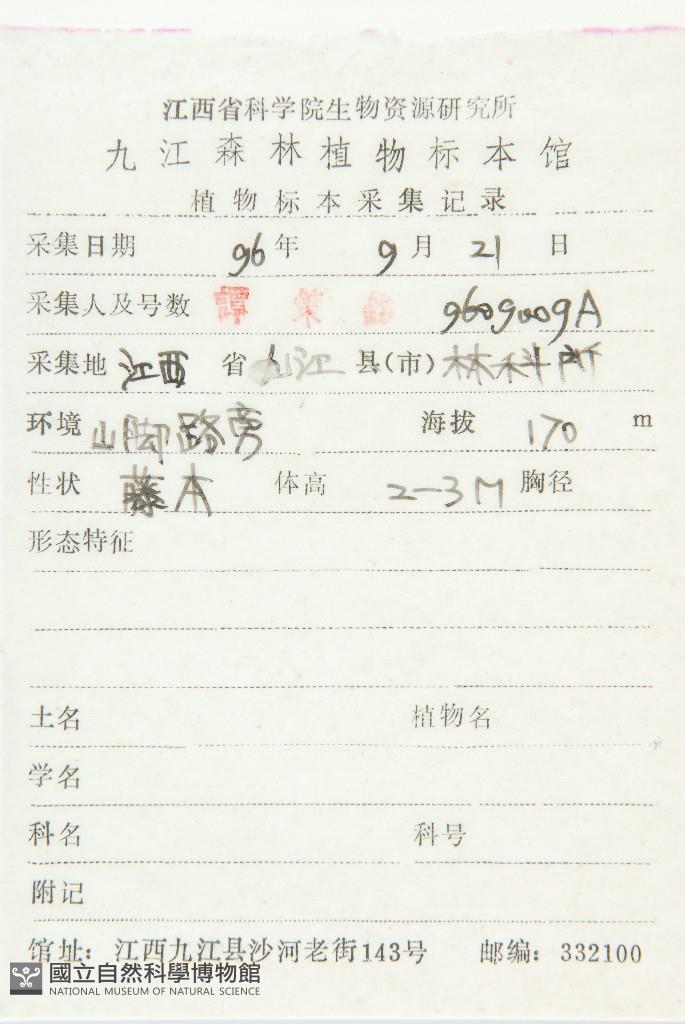 江西省科学院生物资源研究所
九江森林植物标本馆
植物标本采集记录
采集日期 96年 9月 21 日
采集人及号数 譚策銘 9609009A
采集地 江西 省 九江 县(市) 林科所
环境 山脚路旁 海拔 170 m
性状 藤本 体高 2-3M 胸径
形态特征
土名 植物名
学名
科名 科号
附记
馆址：江西九江县沙河老街143号 邮编：332100
國立自然科學博物館
NATIONAL MUSEUM OF NATURAL SCIENCE